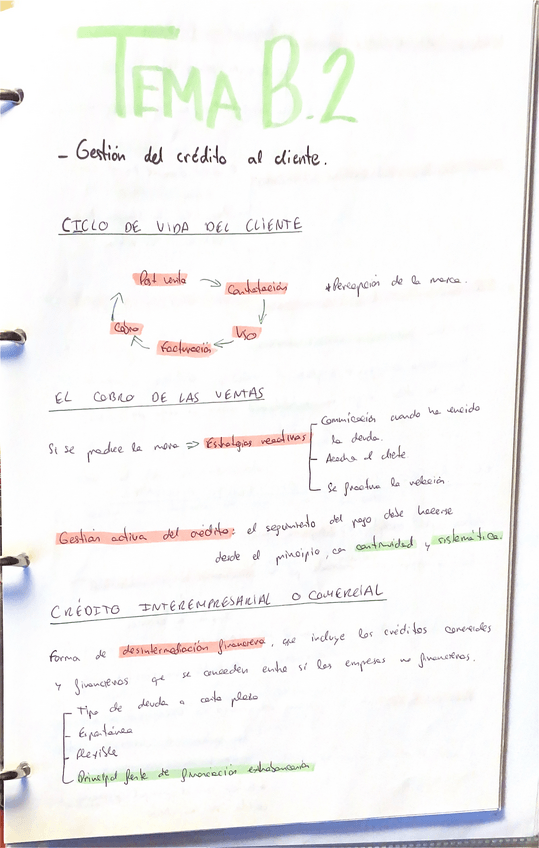 TEMA B.2
- Gestión del crédito al cliente.
CICLO DE VIDA DEL CLIENTE
Post venta → Contratación
+ Percepción de la marca.
Cobro
Uso
Facturación
EL COBRO DE LAS VENTAS
Comunicación cuando ha vencido
la deuda.
Si se produce la mora => Estrategias reactivas
el cliente
Se fractura la relación
Gestión activa del crédito: el seguimiento del pago debe hacerse
desde el principio, con continuidad y sistemática.
CRÉDITO INTEREMPRESARIAL O COMERCIAL
Forma de desintermediación financiera, que incluye los créditos comerciales
y financieros que se conceden entre sí las empresas no financieras.
- Tipo de deuda a corto plazo
- Espontánea
- Flexible
- Principal fuente de financiación extrabancaria